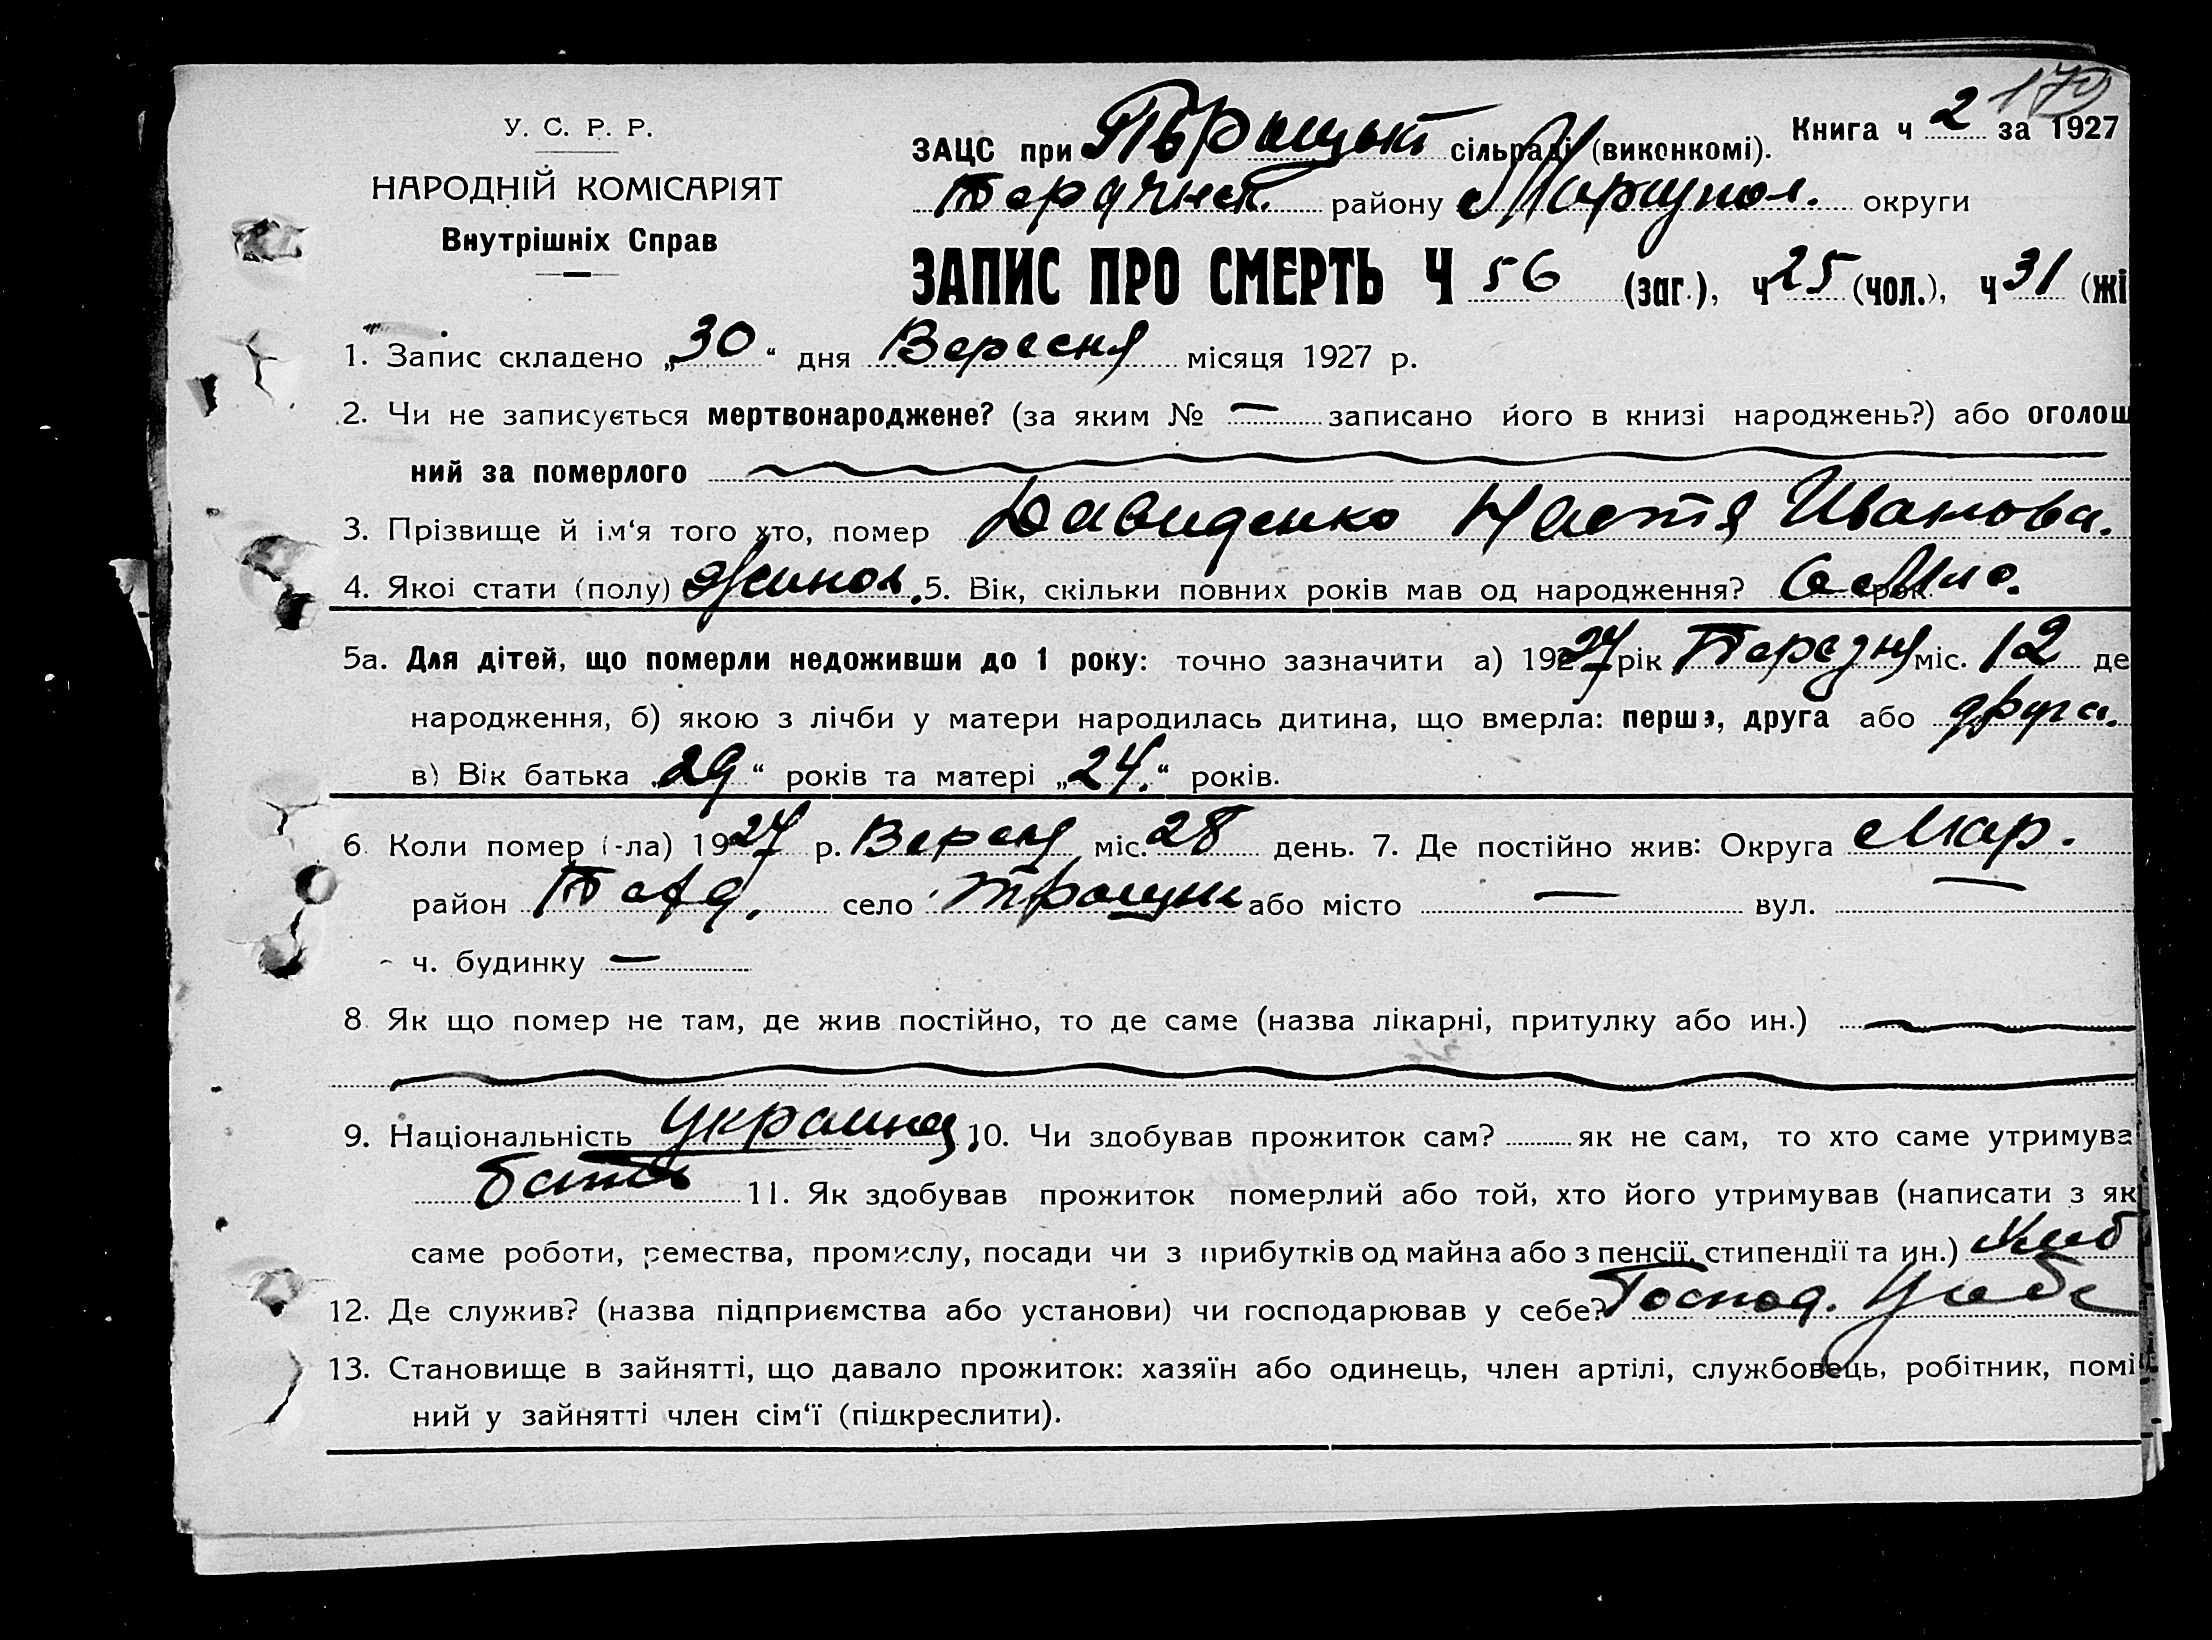 179
У. С. Р. Р.
НАРОДНІЙ КОМІСАРІЯТ
Внутрішніх Справ
Книга ч 2 за 1927
ЗАЦС при сільраді (виконкомі).
району Мариупол. округи
ЗАПИС ПРО СМЕРТЬ Ч 56 (заг.), ч 25 (чол.), ч 31 (жі
1. Запис складено „30“ дня Вересня місяця 1927 р.
2. Чи не записується мертвонароджене? (за яким № — записано його в книзі народжень?) або оголош
ний за померлого
3. Прізвище й ім‘я того хто, помер Давиденко Настя Иванова.
4. Якоі стати (полу) 5. Вік, скільки повних років мав од народження? рок.
5а. Для дітей, що померли недоживши до 1 року: точно зазначити а) 1927 рік міс. 12 де
народження, б) якою з лічби у матери народилась дитина, що вмерла: перша, друга або друга.
в) Вік батька „29“ років та матері „24.“ років.
6. Коли помер (-ла) 1927 р. міс. 28 день. 7. Де постійно жив: Округа Мар.
район село або місто — вул. —
ч. будинку —
8. Як що помер не там, де жив постійно, то де саме (назва лікарні, притулку або ин.)
9. Національність 10. Чи здобував прожиток сам? як не сам, то хто саме утримува
11. Як здобував прожиток померлий або той, хто його утримував (написати з як
саме роботи, ремества, промислу, посади чи з прибутків од майна або з пенсії, стипендії та ин.)
12. Де служив? (назва підприємства або установи) чи господарював у себе? Господ. у себе
13. Становище в зайнятті, що давало прожиток: хазяїн або одинець, член артілі, службовець, робітник, помі
ний у зайнятті член сім‘ї (підкреслити).